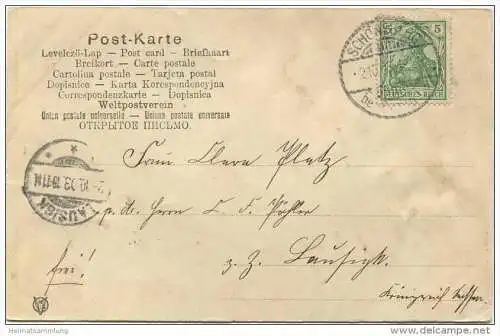 Post-Karte
Levelező-Lap — Post card — Briefkaart
Brefkort — Carte postale
Cartolina postale — Tarjeta postal
Dopisnice — Karta Korespondencyjna
Correspondenzkarte — Dopisnica
Weltpostverein
Union postale universelle — Unione postale universale
ОТКРЫТОЕ ПИСЬМО.
5
DEUTSCHES REICH
LAUSIGK
Frau Clara Platz
p. Adr. Herrn C. F.
z. Z. Lausigk.
frei!
Königreich Sachsen.
Heimatsammlung.de
delcampe.net